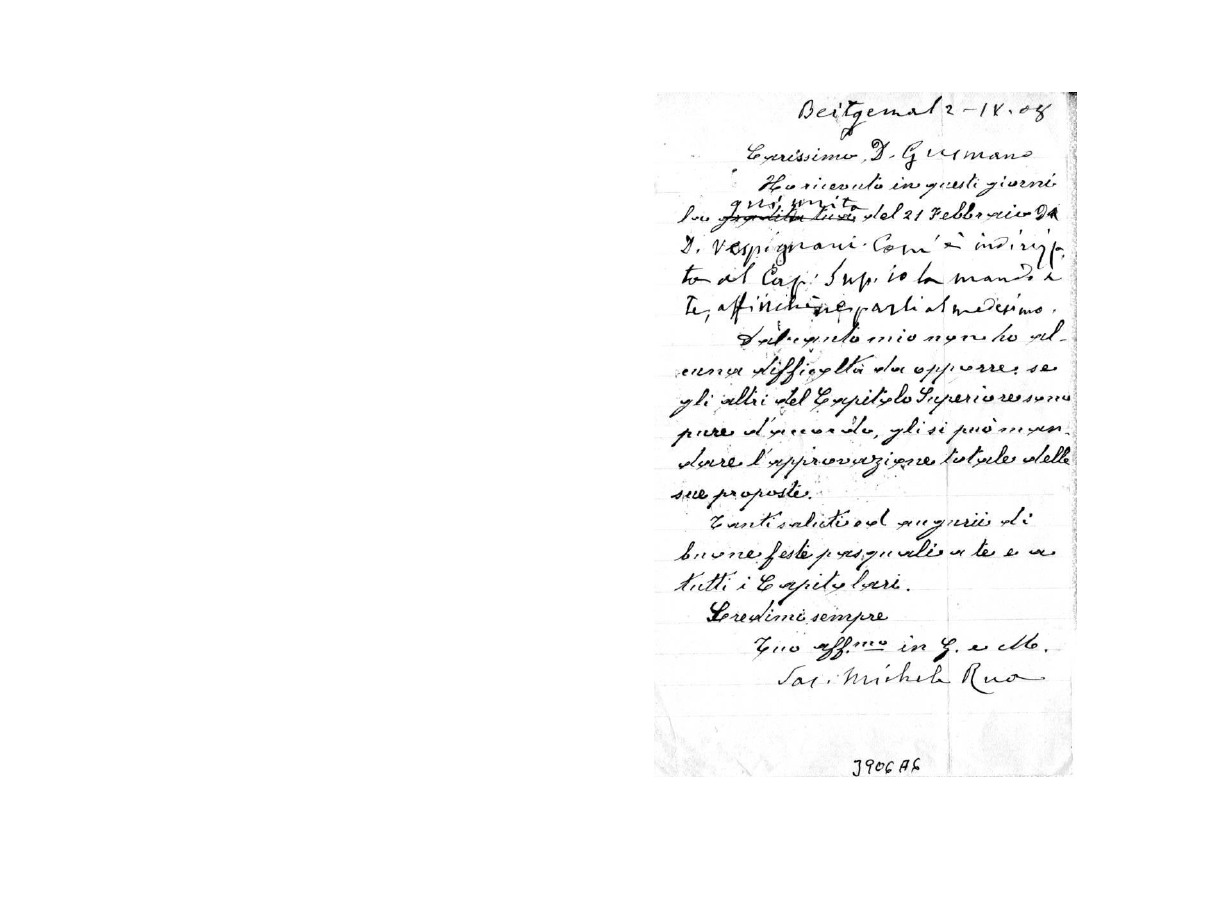 Beitgemal 2-IV.08
Carissimo D. Gusmano
Ho ricevuto in questi giorni
qui unita
la gradita tua del 21 Febbraio da
D. Vespignani. Com'è indirizza-
ta al Cap. Sup. io la mando a
te, affinchè ne parli al medesimo.
Dal canto mio non ho al-
cuna difficoltà da opporre: se
gli altri del Capitolo Superiore sono
pure d'accordo, gli si può man-
dare l'approvazione totale delle
sue proposte.
Tanti saluti ed augurii di
buone feste pasquali a te e a
tutti i Capitolari.
Credimi sempre
Tuo aff.mo in G. e M.
Sac. Michele Rua
3906 A6